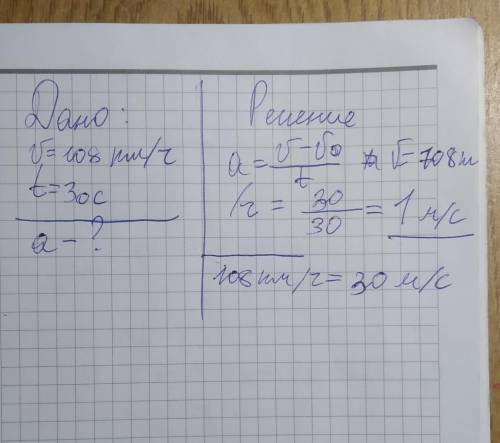 Дано:
v=108 км/ч
t=30с
a-?
Решение
a = v-v₀/t v=108м
/ч = 30/30 = 1 м/с
108 км/ч = 30 м/с